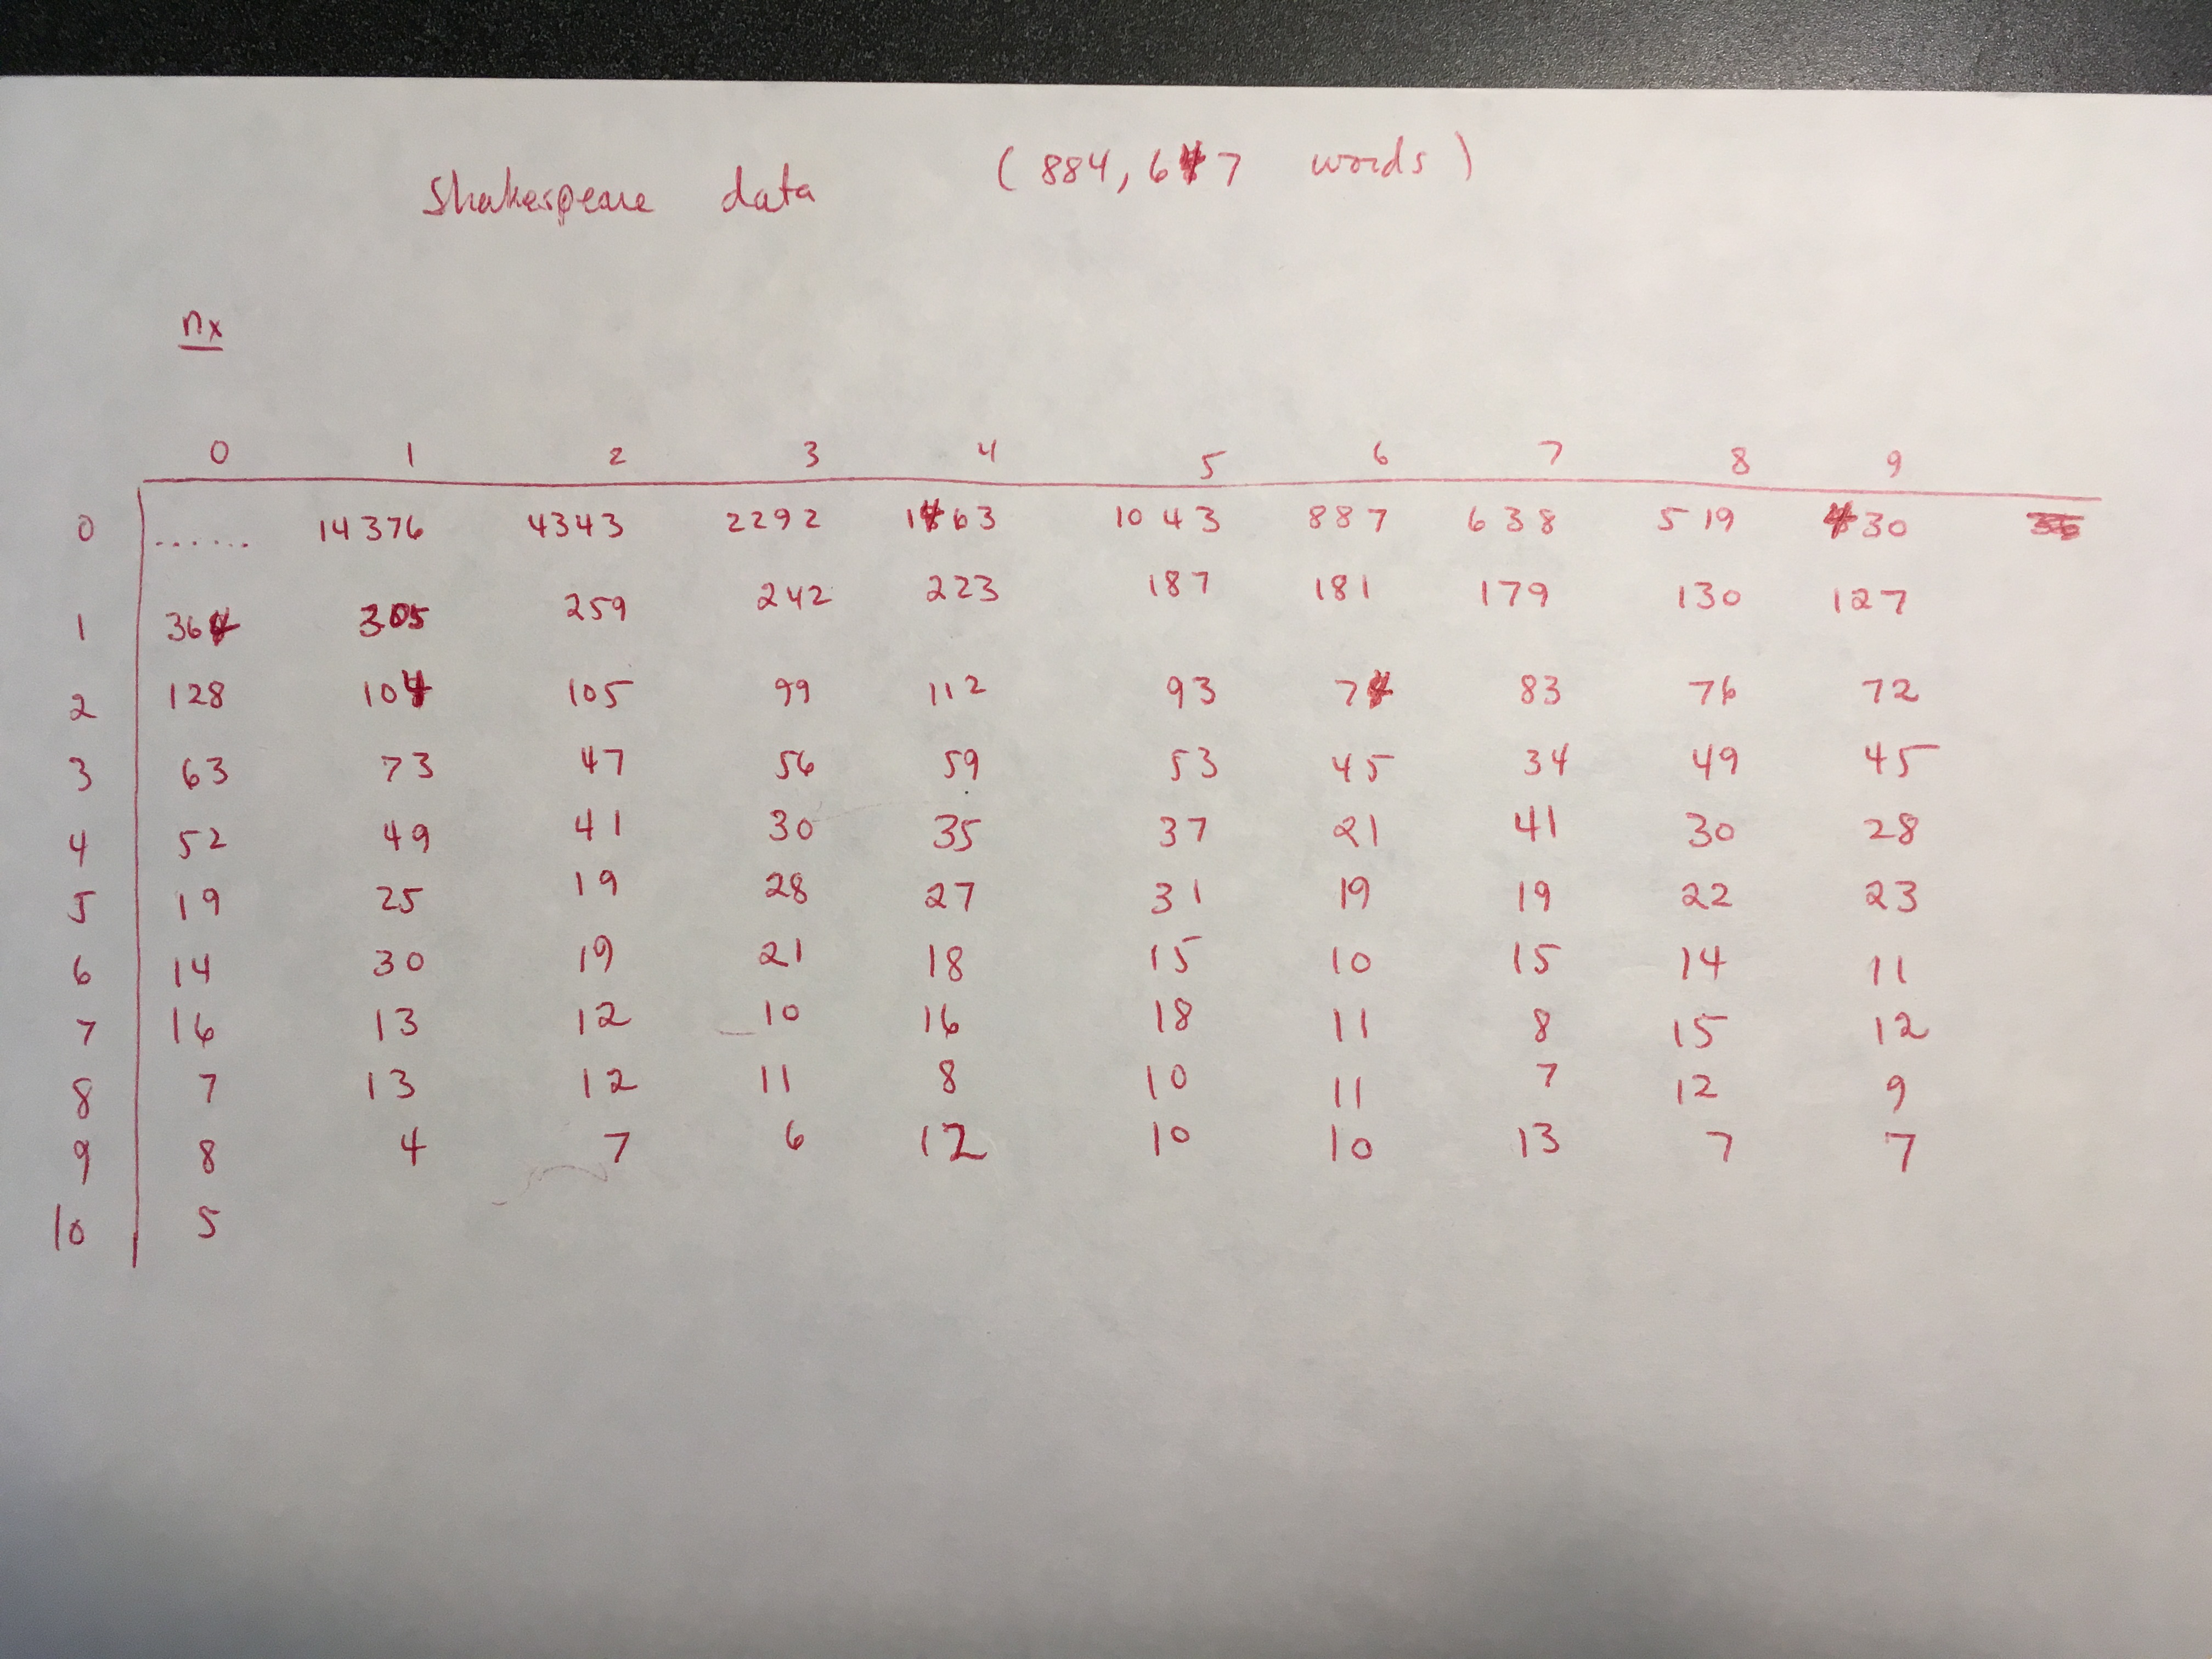 Shakespeare data (884,647 words)
nx
0 1 2 3 4 5 6 7 8 9
0 ...... 14376 4343 2292 1463 1043 887 638 519 430
1 364 305 259 242 223 187 181 179 130 127
2 128 104 105 99 112 93 74 83 76 72
3 63 73 47 56 59 53 45 34 49 45
4 52 49 41 30 35 37 21 41 30 28
5 19 25 19 28 27 31 19 19 22 23
6 14 30 19 21 18 15 10 15 14 11
7 16 13 12 10 16 18 11 8 15 12
8 7 13 12 11 8 10 11 7 12 9
9 8 4 7 6 12 10 10 13 7 7
10 5